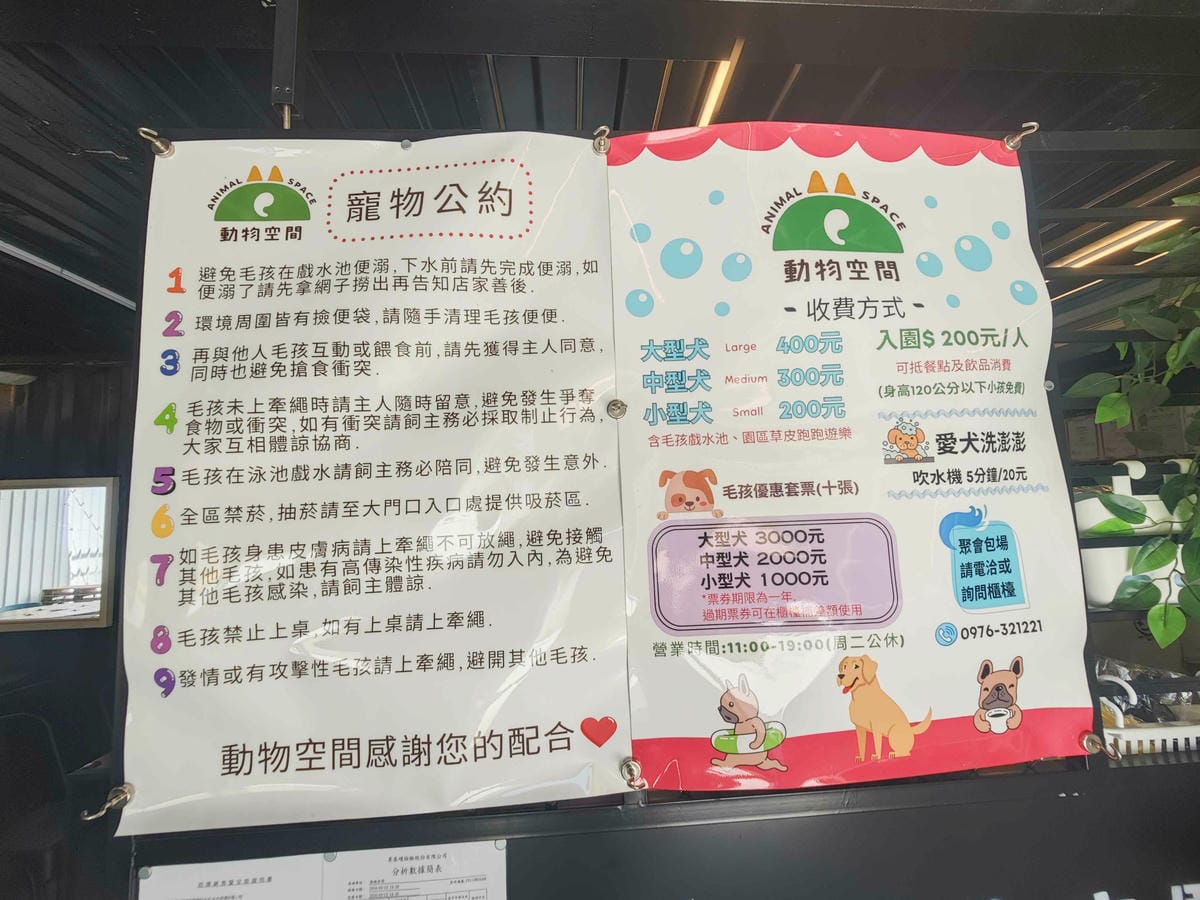 ANIMAL SPACE
動物空間
寵物公約
1 避免毛孩在戲水池便溺,下水前請先完成便溺,如
便溺了請先拿網子撈出再告知店家善後.
2 環境周圍皆有撿便袋,請隨手清理毛孩便便.
3 再與他人毛孩互動或餵食前,請先獲得主人同意,
同時也避免搶食衝突.
4 毛孩未上牽繩時請主人隨時留意,避免發生爭奪
食物或衝突,如有衝突請飼主務必採取制止行為,
大家互相體諒協商.
5 毛孩在泳池戲水請飼主務必陪同,避免發生意外.
6 全區禁菸,抽菸請至大門口入口處提供吸菸區.
7 如毛孩身患皮膚病請上牽繩不可放繩,避免接觸
其他毛孩,如患有高傳染性疾病請勿入內,為避免
其他毛孩感染,請飼主體諒.
8 毛孩禁止上桌,如有上桌請上牽繩.
9 發情或有攻擊性毛孩請上牽繩,避開其他毛孩.
動物空間感謝您的配合
ANIMAL SPACE
動物空間
- 收費方式 -
大型犬 Large 400元
中型犬 Medium 300元
小型犬 Small 200元
含毛孩戲水池、園區草皮跑跑遊樂
入園$ 200元/人
可抵餐點及飲品消費
(身高120公分以下小孩免費)
愛犬洗澎澎
吹水機 5分鐘/20元
毛孩優惠套票(十張)
大型犬 3000元
中型犬 2000元
小型犬 1000元
*票券期限為一年,
過期票券可在櫃檯補差額使用
聚會包場
請電洽或
詢問櫃檯
0976-321221
營業時間:11:00-19:00(周二公休)
分析數據簡表